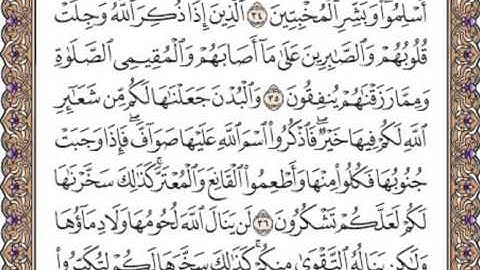 أَسْلِمُوا۟ ۗ وَبَشِّرِ ٱلْمُخْبِتِينَ ٣٤ ٱلَّذِينَ إِذَا ذُكِرَ ٱللَّهُ وَجِلَتْ
قُلُوبُهُمْ وَٱلصَّٰبِرِينَ عَلَىٰ مَآ أَصَابَهُمْ وَٱلْمُقِيمِى ٱلصَّلَوٰةِ
وَمِمَّا رَزَقْنَٰهُمْ يُنفِقُونَ ٣٥ وَٱلْبُدْنَ جَعَلْنَٰهَا لَكُم مِّن شَعَٰٓئِرِ
ٱللَّهِ لَكُمْ فِيهَا خَيْرٌ ۖ فَٱذْكُرُوا۟ ٱسْمَ ٱللَّهِ عَلَيْهَا صَوَآفَّ ۖ فَإِذَا وَجَبَتْ
جُنُوبُهَا فَكُلُوا۟ مِنْهَا وَأَطْعِمُوا۟ ٱلْقَانِعَ وَٱلْمُعْتَرَّ ۚ كَذَٰلِكَ سَخَّرْنَٰهَا
لَكُمْ لَعَلَّكُمْ تَشْكُرُونَ ٣٦ لَن يَنَالَ ٱللَّهَ لُحُومُهَا وَلَا دِمَآؤُهَا
وَلَٰكِن يَنَالُهُ ٱلتَّقْوَىٰ مِنكُمْ ۚ كَذَٰلِكَ سَخَّرَهَا لَكُمْ لِتُكَبِّرُوا۟